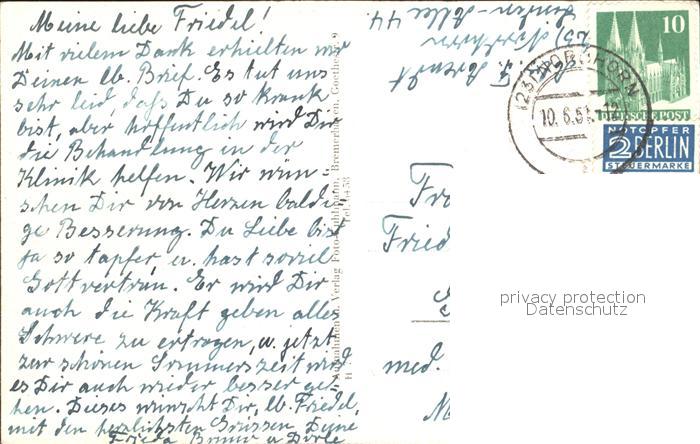 Meine liebe Friedel!
Mit vielem Dank erhielten wir
Deinen lb. Brief. Es tut uns
sehr leid, daß Du so krank
bist, aber hoffentlich wird Dir
die Behandlung in der
Klinik helfen. Wir wün-
schen Dir von Herzen baldi-
ge Besserung. Du Liebe bist
ja so tapfer u. hast soviel
Gottvertrau'n. Er wird Dir
auch die Kraft geben alles
Schwere zu ertragen, u. jetzt
zur schönen Sommerszeit wird
es Dir auch wieder besser ge-
hen. Dieses wünscht Dir, lb. Friedel,
mit den herzlichsten Grüssen, Deine
Frieda
Verlag Foto
Bremerhaven, Goethestr. 9
44
10
DEUTSCHE POST
NORDHORN
10.6.51.-12
NOTOPFER
2 BERLIN
STEUERMARKE
Fr
Fried
med.
privacy protection
Datenschutz